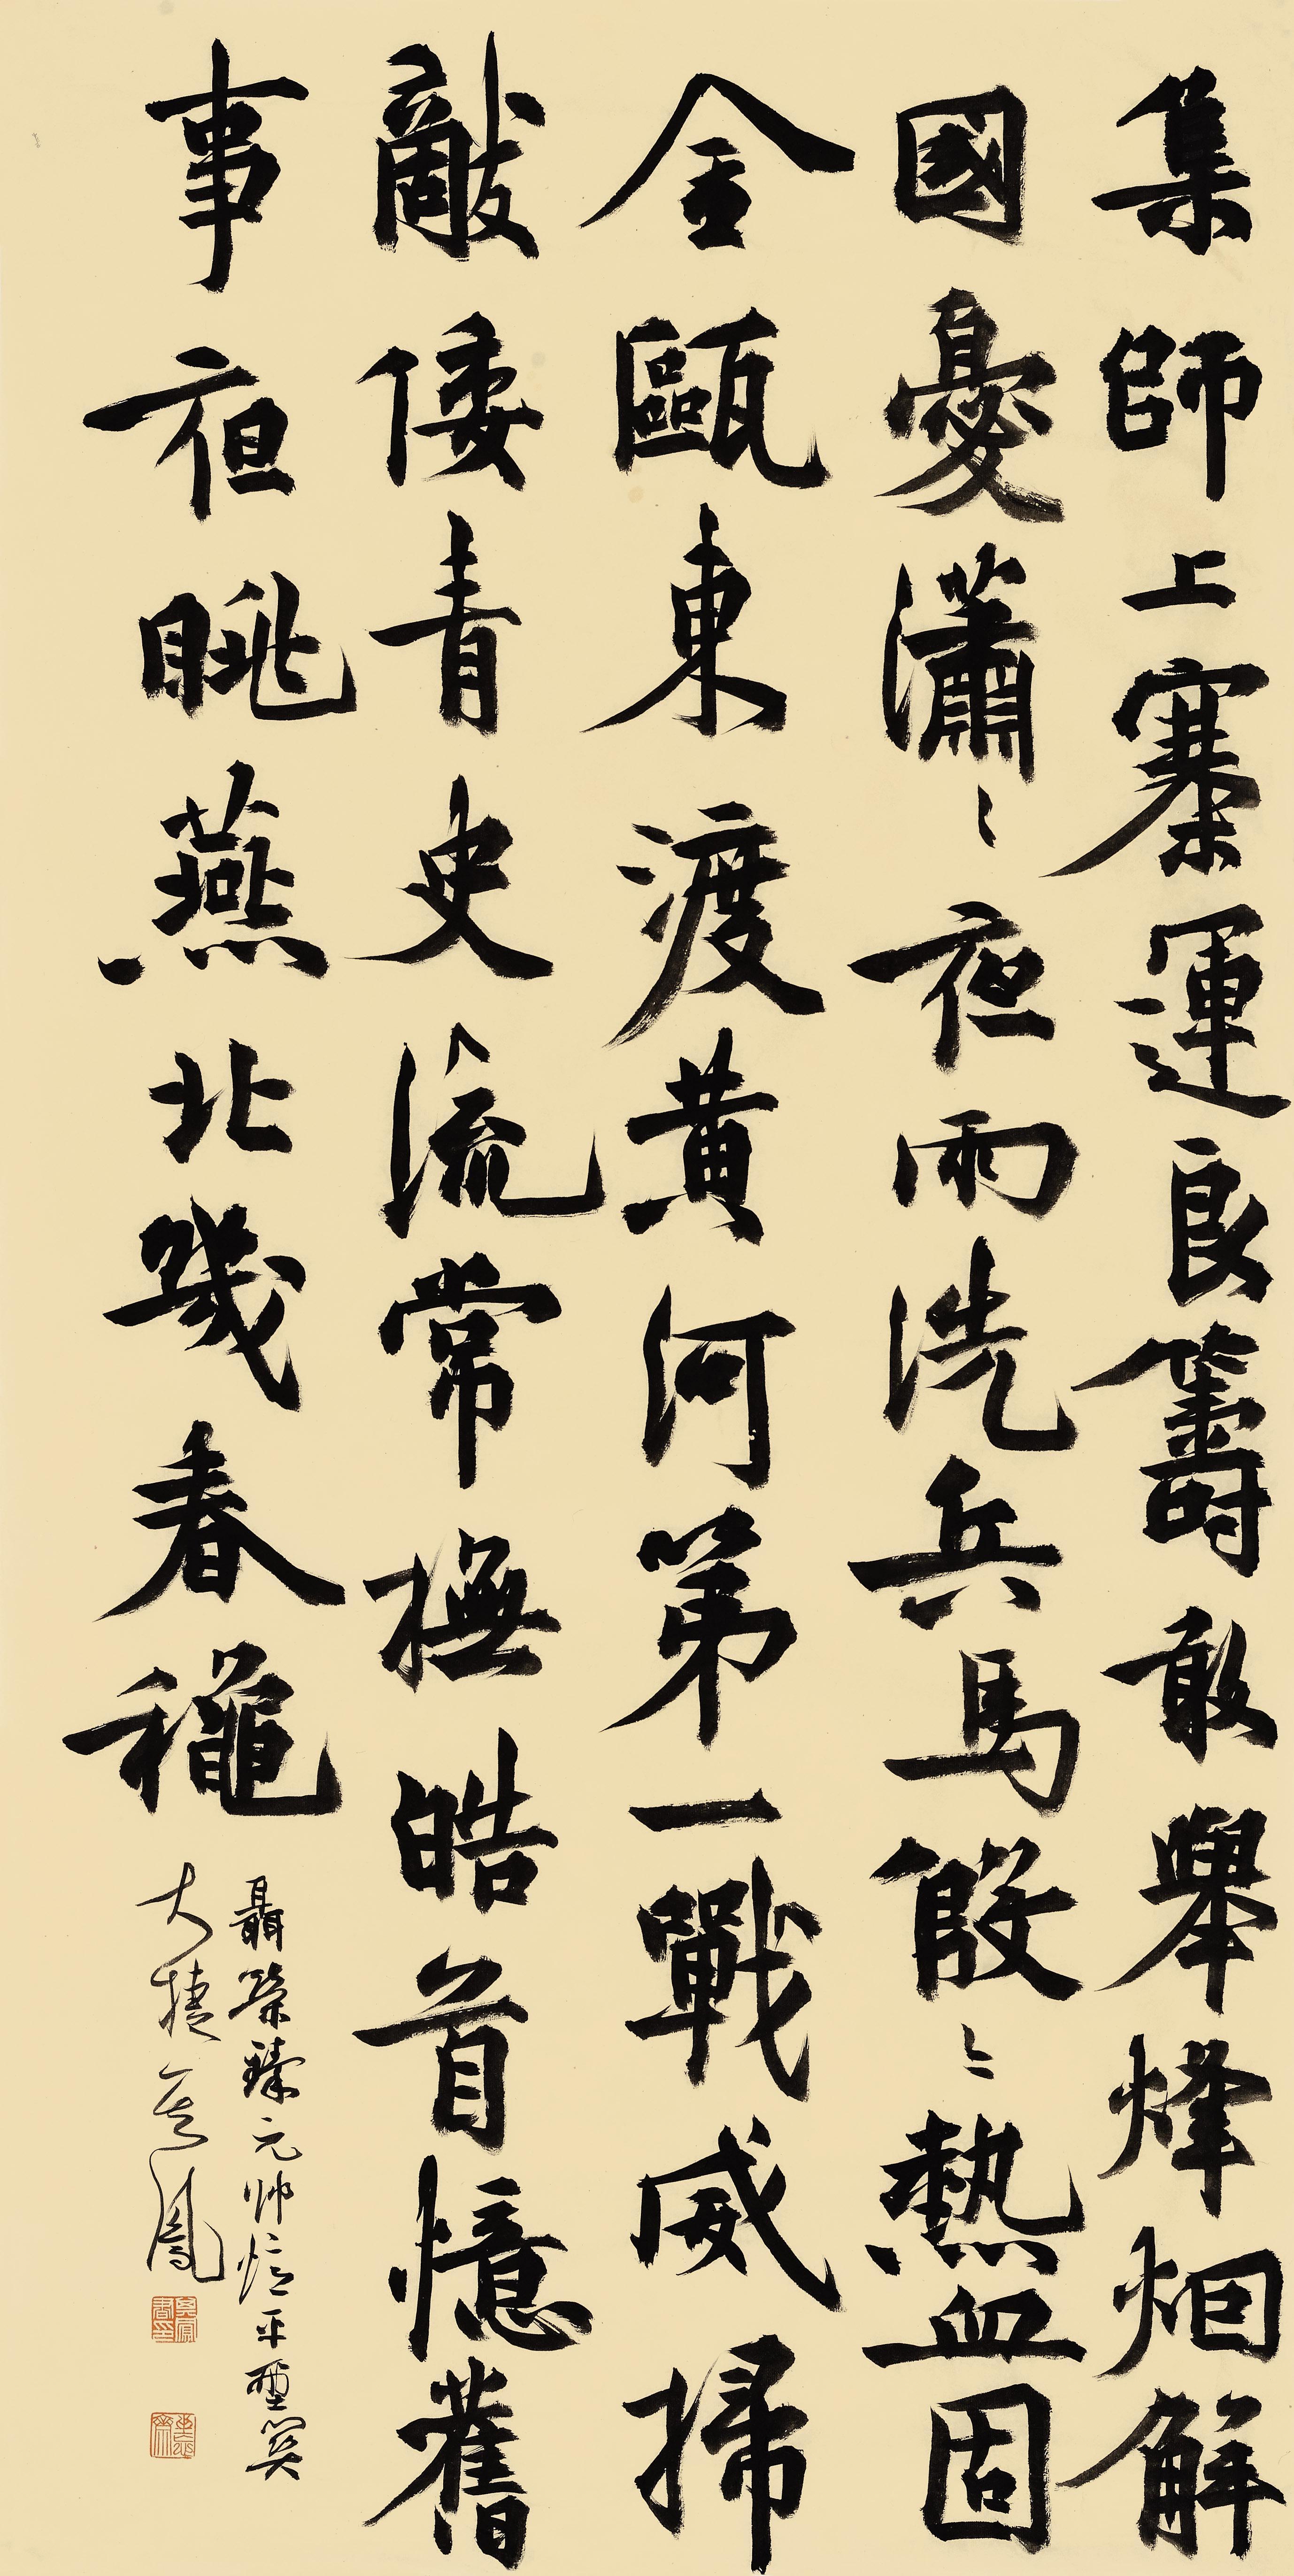 集師上寨運良籌敢舉烽烟解
國憂瀟〻夜雨洗兵馬殷〻熱血固
金甌東渡黃河第一戰威掃
敵倭青史流常撫皓首憶舊
事夜眺燕北幾春穐
聶榮臻元帥憶平型關
大捷 吳鳳